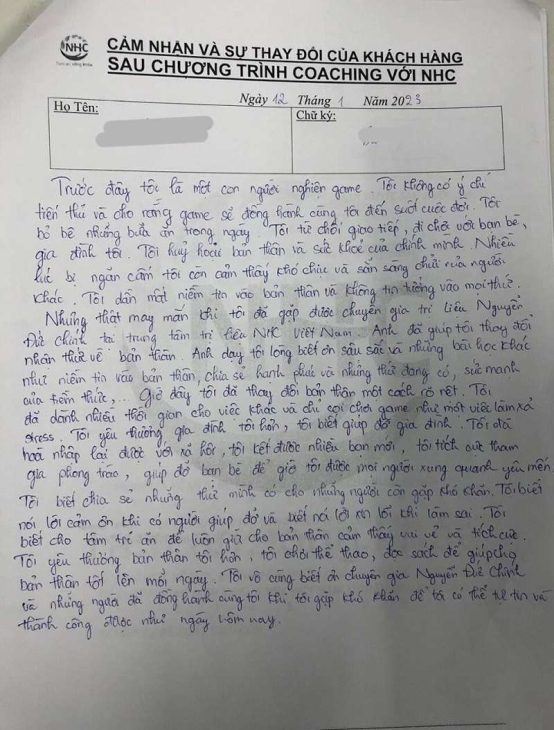 NHC
CẢM NHẬN VÀ SỰ THAY ĐỔI CỦA KHÁCH HÀNG
SAU CHƯƠNG TRÌNH COACHING VỚI NHC
Ngày 12 Tháng 1 Năm 2023
Họ Tên:
Chữ ký:
Trước đây tôi là một con người nghiện game. Tôi không có ý chí
tiến thủ và cho rằng game sẽ đồng hành cùng tôi đến suốt cuộc đời. Tôi
bỏ bê những bữa ăn trong ngày. Tôi từ chối giao tiếp, đi chơi với bạn bè,
gia đình tôi. Tôi huỷ hoại bản thân và sức khoẻ của chính mình. Nhiều
lúc bị ngăn cấm tôi còn cảm thấy khó chịu và sẵn sàng chửi rủa người
khác. Tôi dần mất niềm tin vào bản thân và không tin tưởng vào mọi thứ.
Nhưng thật may mắn khi tôi đã gặp được chuyên gia trị liệu Nguyễn
Đức Chính tại trung tâm trị liệu NHC Việt Nam. Anh đã giúp tôi thay đổi
nhận thức về bản thân. Anh dạy tôi lòng biết ơn sâu sắc và những bài học khác
như niềm tin vào bản thân, chia sẻ hạnh phúc và những thứ đang có, sức mạnh
của tiềm thức,... Giờ đây tôi đã thay đổi bản thân một cách rõ rệt. Tôi
đã dành nhiều thời gian cho việc khác và chỉ coi chơi game như một việc làm xả
stress. Tôi yêu thương gia đình tôi hơn, tôi biết giúp đỡ gia đình. Tôi đã
hoà nhập lại được với xã hội, tôi kết được nhiều bạn mới, tôi tích cực tham
gia phong trào, giúp đỡ bạn bè để giờ tôi được mọi người xung quanh yêu mến
Tôi biết chia sẻ những thứ mình có cho những người còn gặp khó khăn. Tôi biết
nói lời cảm ơn khi có người giúp đỡ và biết nói lời xin lỗi khi làm sai. Tôi
biết cho tâm trí ăn để luôn giữ cho bản thân cảm thấy vui vẻ và tích cực.
Tôi yêu thương bản thân tôi hơn, tôi chơi thể thao, đọc sách để giúp cho
bản thân tốt lên mỗi ngày. Tôi vô cùng biết ơn chuyên gia Nguyễn Đức Chính
và những người đã đồng hành cùng tôi khi tôi gặp khó khăn để tôi có thể tự tin và
thành công được như ngày hôm nay.